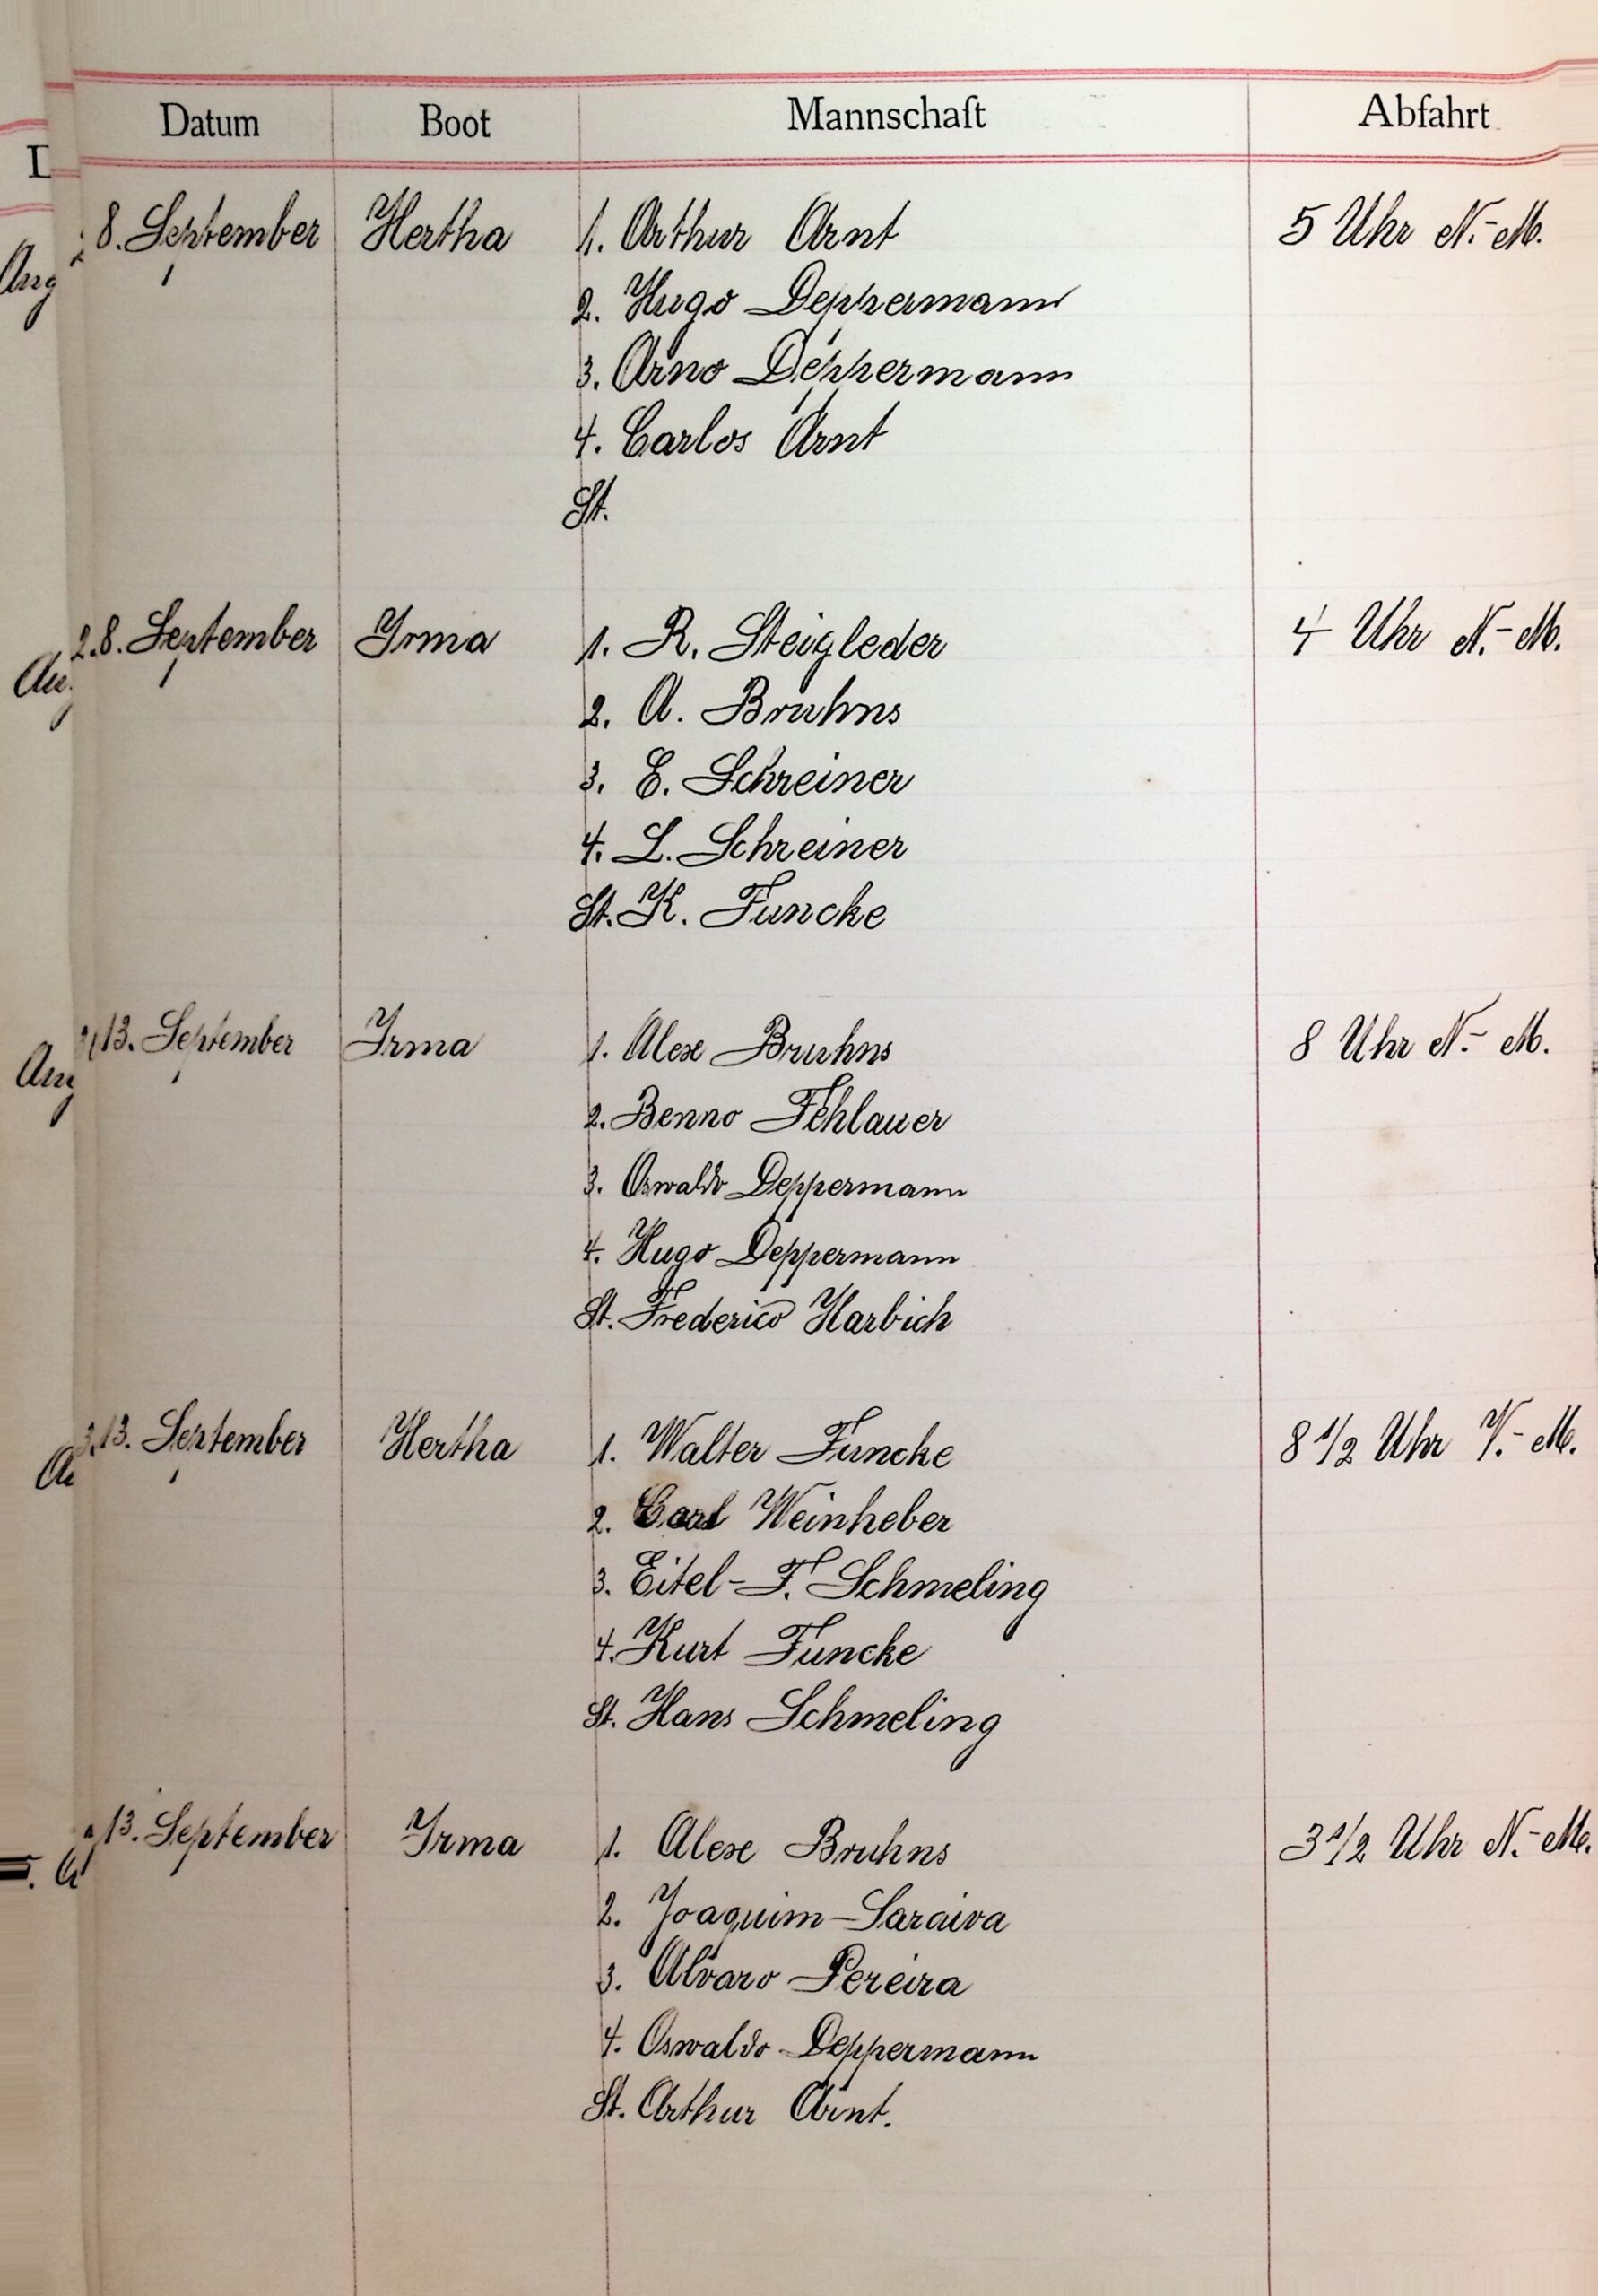 Datum Boot Mannschaft Abfahrt
8. September Hertha 1. Arthur Arnt 5 Uhr N.-M.
2. Hugo Deppermann
3. Arno Deppermann
4. Carlos Arnt
St.
2.8. September Irma 1. R. Steigleder 4 Uhr N.-M.
2. A. Bruhns
3. E. Schreiner
4. L. Schreiner
St. K. Funcke
13. September Irma 1. Alex Bruhns 8 Uhr N.-M.
2. Benno Fehlauer
3. Oswaldo Deppermann
4. Hugo Deppermann
St. Frederico Harbich
13. September Hertha 1. Walter Funcke 8 1/2 Uhr V.-M.
2. Carl Weinheber
3. Eitel-F. Schmeling
4. Kurt Funcke
St. Hans Schmeling
13. September Irma 1. Alex Bruhns 3 1/2 Uhr N.-M.
2. Joaquim-Saraiva
3. Alvaro Pereira
4. Oswaldo Deppermann
St. Arthur Arnt.